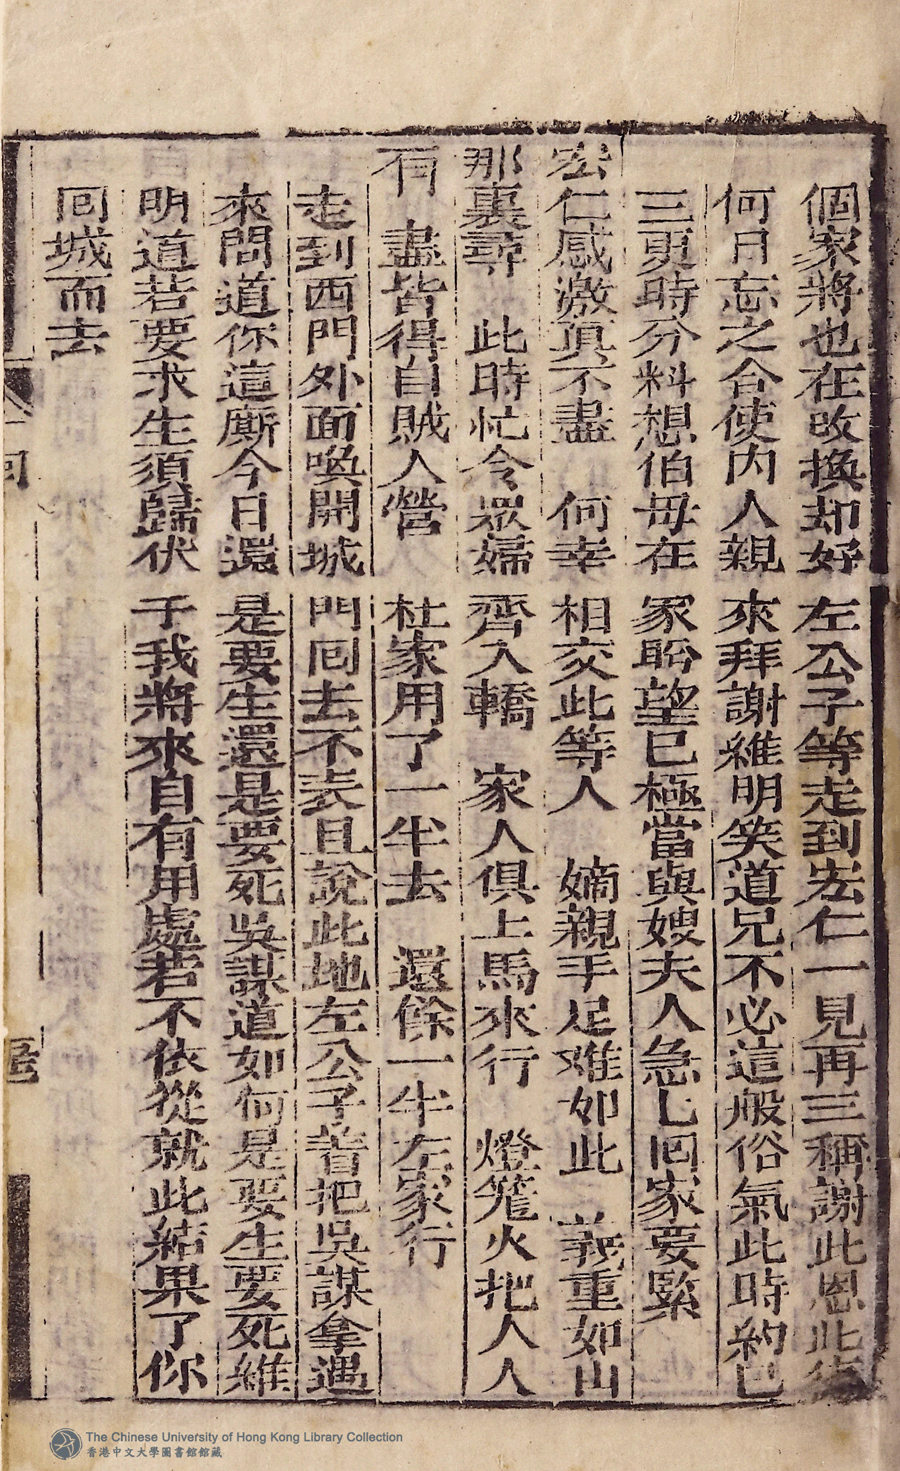 個家將也在改換却好左公子等走到宏仁一見再三稱謝此恩此德
何日忘之合使内人親來拜謝維明笑道兄不必這般俗氣此時約已
三更時分料想伯母在家盼望已極當與嫂夫人急乚回家要緊
宏仁感激眞不盡　何幸相交此等人　嫡親手足难如此　義重如山
那裏尋　此時忙令眾婦齊入轎　家人俱上馬來行　燈篭火把人人
有　盡皆得自賊人營　杜家用了一半去　還餘一半左家行
走到西門外面喚開城門囘去不表且說此地左公子着把吳謀拿過
來問道你這厮今日還是要生還是要死吳謀道如何是要生要死維
明道若要求生須歸伏于我將來自有用處若不依從就此結果了你
囘城而去
回
The Chinese University of Hong Kong Library Collection
香港中文大學圖書館館藏